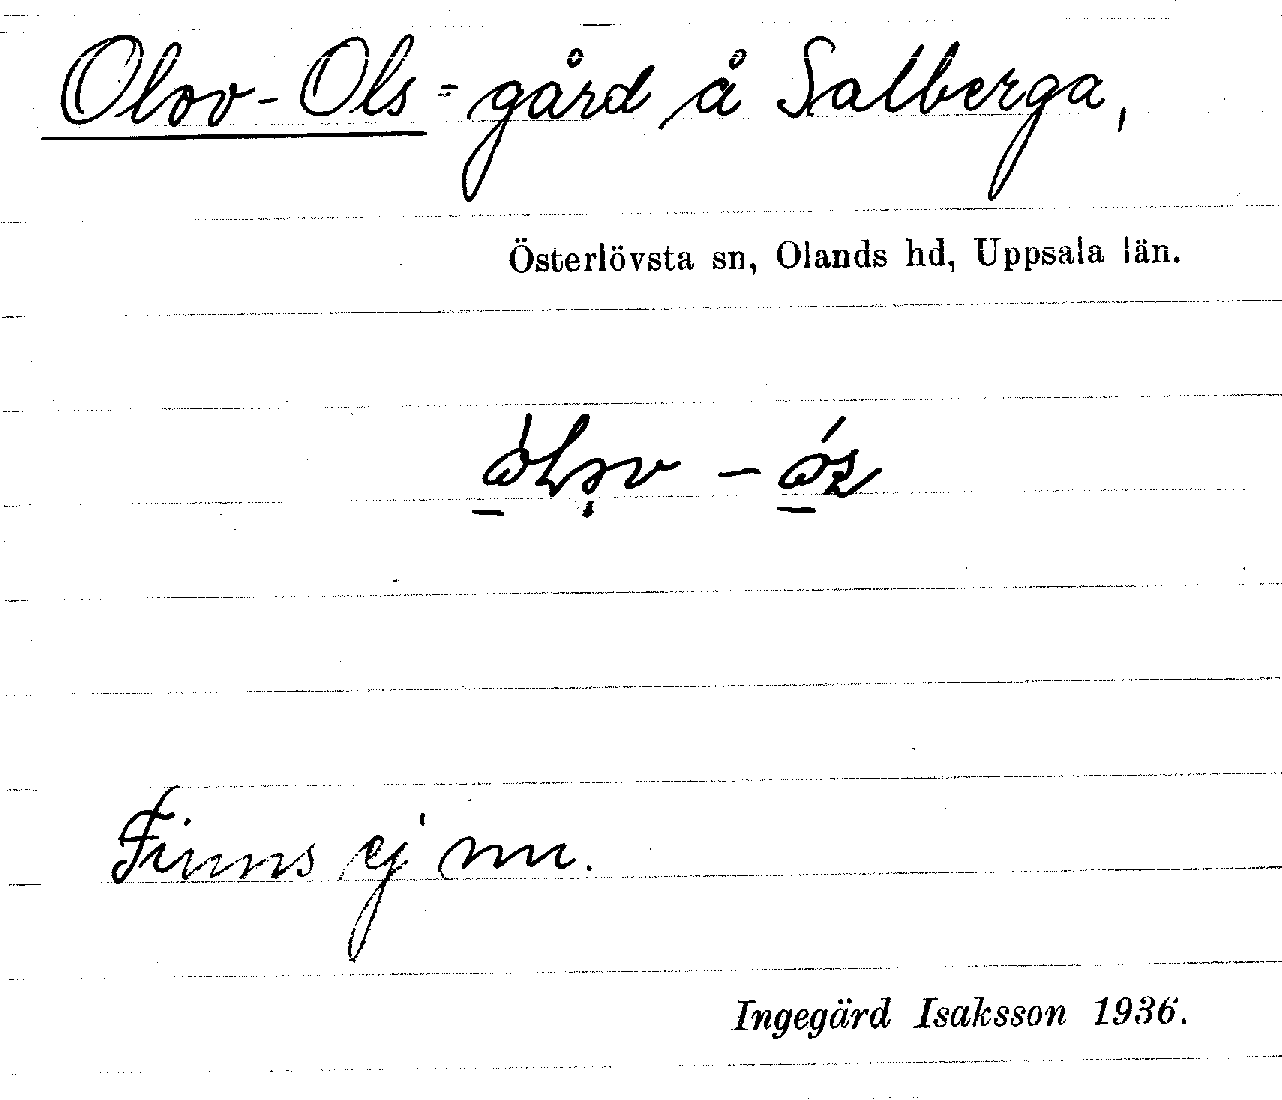 Olov-Ols=gård å Salberga,
Österlövsta sn, Olands hd, Uppsala län.
Finns ej nu.
Ingegärd Isaksson 1936.